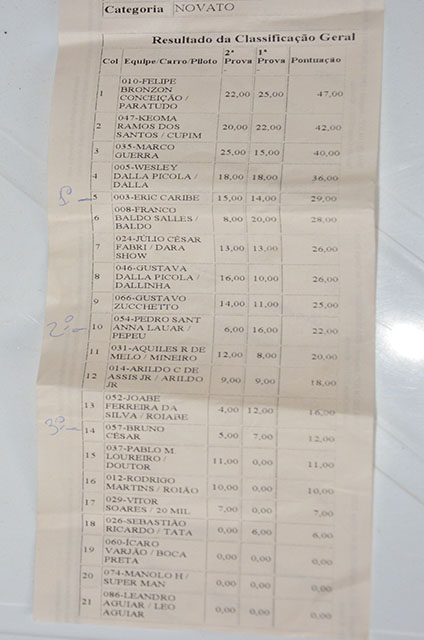 Categoria NOVATO
Resultado da Classificação Geral
Col Equipe/Carro/Piloto 2ª Prova 1ª Prova Pontuação
1 010-FELIPE BRONZON CONCEIÇÃO / PARATUDO 22,00 25,00 47,00
2 047-KEOMA RAMOS DOS SANTOS / CUPIM 20,00 22,00 42,00
3 035-MARCO GUERRA 25,00 15,00 40,00
4 005-WESLEY DALLA PICOLA / DALLA 18,00 18,00 36,00
5 003-ERIC CARIBE 15,00 14,00 29,00
6 008-FRANCO BALDO SALLES / BALDO 8,00 20,00 28,00
7 024-JÚLIO CÉSAR FABRI / DARA SHOW 13,00 13,00 26,00
8 046-GUSTAVA DALLA PICOLA / DALLINHA 16,00 10,00 26,00
9 066-GUSTAVO ZUCCHETTO 14,00 11,00 25,00
2º 10 054-PEDRO SANT ANNA LAUAR / PEPEU 6,00 16,00 22,00
11 031-AQUILES R DE MELO / MINEIRO 12,00 8,00 20,00
12 014-ARILDO C DE ASSIS JR / ARILDO JR 9,00 9,00 18,00
13 052-JOABE FERREIRA DA SILVA / ROIABE 4,00 12,00 16,00
3º 14 057-BRUNO CÉSAR 5,00 7,00 12,00
15 037-PABLO M LOUREIRO / DOUTOR 11,00 0,00 11,00
16 012-RODRIGO MARTINS / ROIÃO 10,00 0,00 10,00
17 029-VITOR SOARES / 20 MIL 7,00 0,00 7,00
18 026-SEBASTIÃO RICARDO / TATA 0,00 6,00 6,00
19 060-ÍCARO VARJÃO / BOCA PRETA 0,00 0,00 0,00
20 074-MANOLO H / SUPER MAN 0,00 0,00 0,00
21 086-LEANDRO AGUIAR / LEO AGUIAR 0,00 0,00 0,00